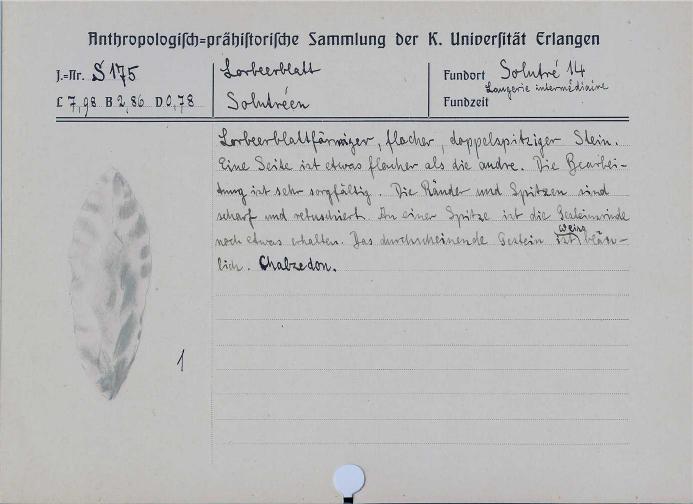 Anthropologisch=prähistorische Sammlung der K. Universität Erlangen
J.=Nr. S 175
Lorbeerblatt
Fundort Solutré 14
Laugerie intermédiaire
L 7,98 B 2,86 D 0,78
Solutréen
Fundzeit
Lorbeerblattförmiger, flacher, doppelspitziger Stein.
Eine Seite ist etwas flacher als die andre. Die Bearbei-
tung ist sehr sorgfältig. Die Ränder und Spitzen sind
scharf und retuschiert. An einer Spitze ist die Gesteinsrinde
weiss
noch etwas erhalten. Das durchscheinende Gestein ist bläu-
lich. Chalzedon.
1